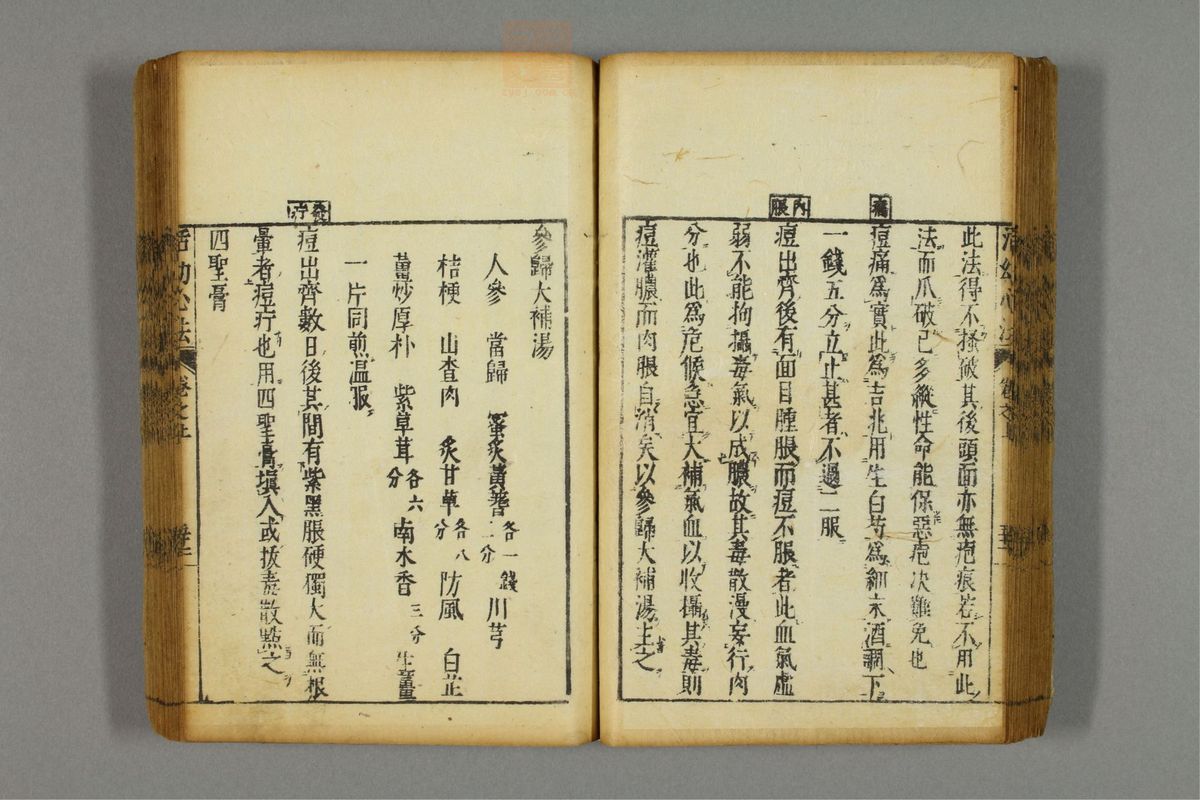 此法得不搔破其後頭面亦無疤痕若不用此
法而爪破已多縱性命能保惡疤决難免也
痛
痘痛爲實此爲吉兆用生白芍爲細末酒調下
一錢五分立止甚者不過二服
內脹
痘出齊後有面目腫脹而痘不脹者此血氣虛
弱不能拘攝毒氣以成膿故其毒散漫妄行肉
分也此爲危候急宜大補氣血以收攝其毒則
痘灌膿而肉脹自消矣以參歸大補湯主之
參歸大補湯
人參 當歸 蜜炙黃蓍各一錢二分 川芎
桔梗 山査肉 炙甘草各八分 防風 白芷
薑炒厚朴 紫草茸各六分 南木香三分 生薑
一片同煎温服
發疔
痘出齊數日後其間有紫黑脹硬獨大而無根
暈者痘疔也用四聖膏填入或拔毒散點之
四聖膏
活幼心法 卷之上